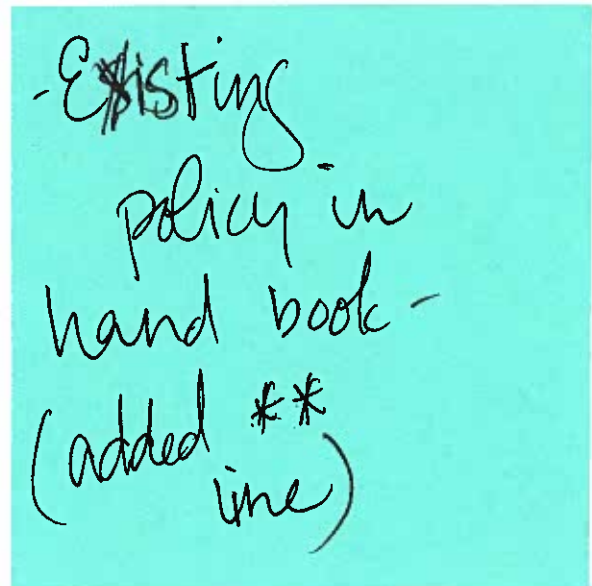 -Existing
policy in
hand book-
(added **
line)